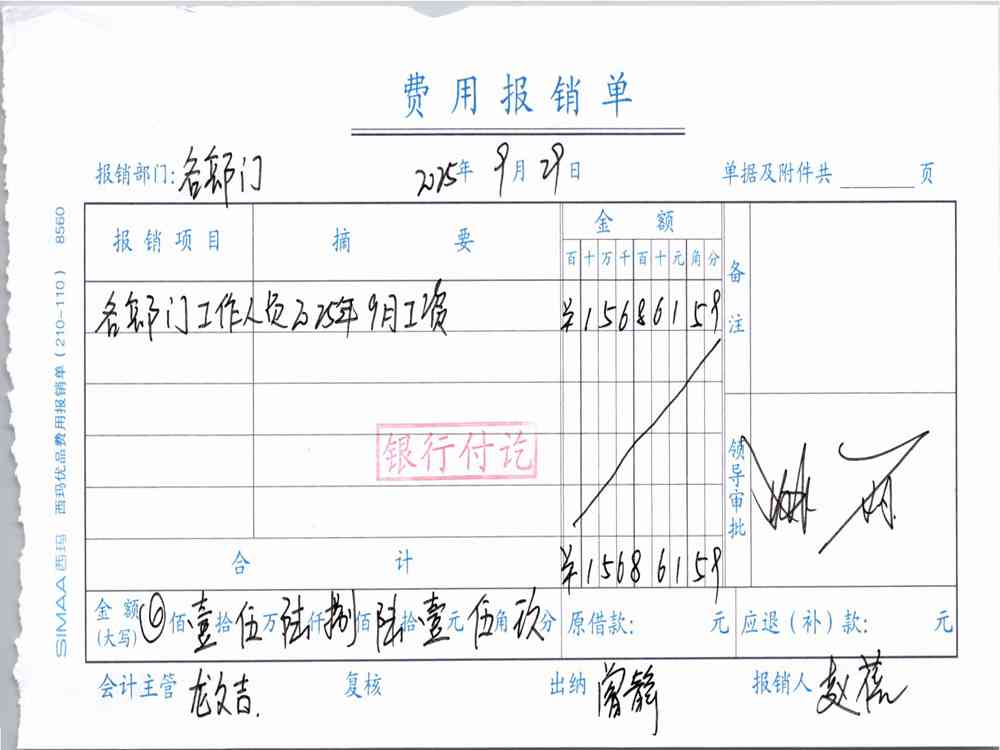 费用报销单
报销部门：各部门 2025年9月29日 单据及附件共 页
报销项目 摘要 金额 备注
百十万千百十元角分
各部门工作人员2025年9月工资 ¥15686159
银行付讫
领导审批
合计 ¥15686159
金额(大写) ⊗佰壹拾伍万陆仟捌佰陆拾壹元伍角玖分 原借款： 元 应退（补）款： 元
会计主管 龙文吉. 复核 出纳 曾静 报销人 赵蓓
SIMAA 西玛 西玛优品费用报销单（210-110） 8560